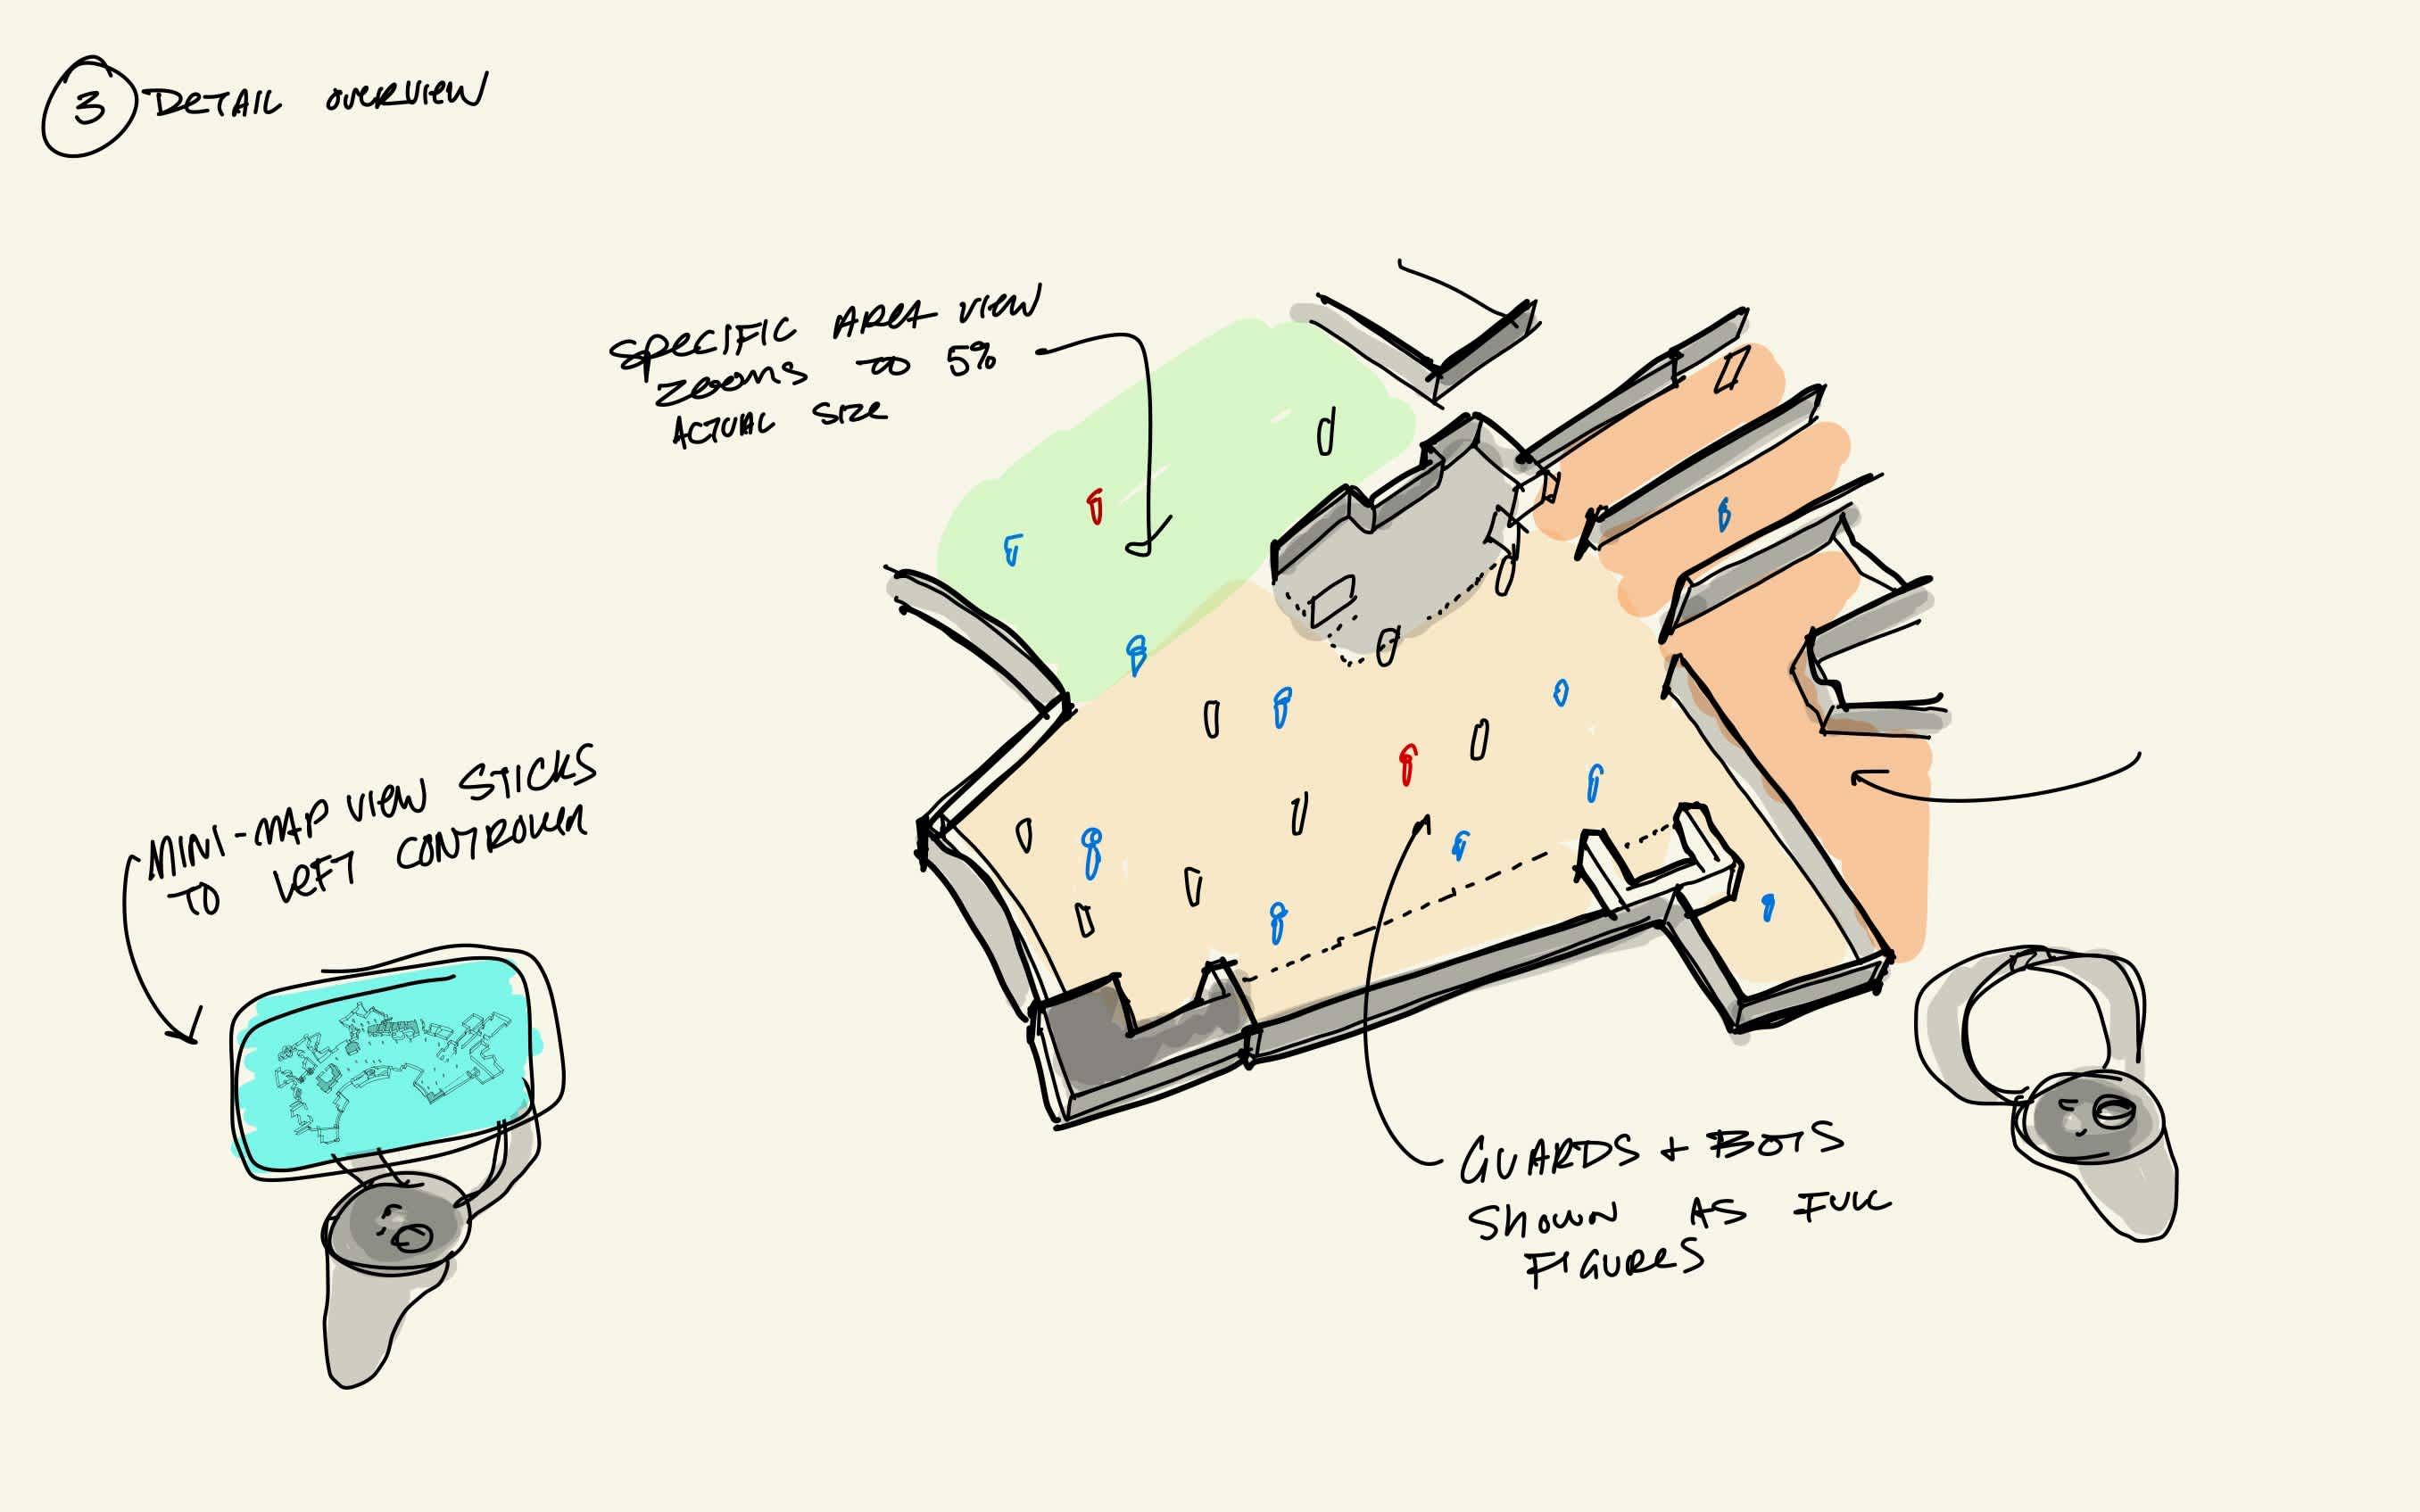 3 DETAIL OVERVIEW
SPECIFIC AREA VIEW
ZOOMS TO 5%
ACTUAL SIZE
MINI-MAP VIEW STICKS
TO LEFT CONTROLLER
GUARDS + BOTS
SHOWN AS FULL
FIGURES